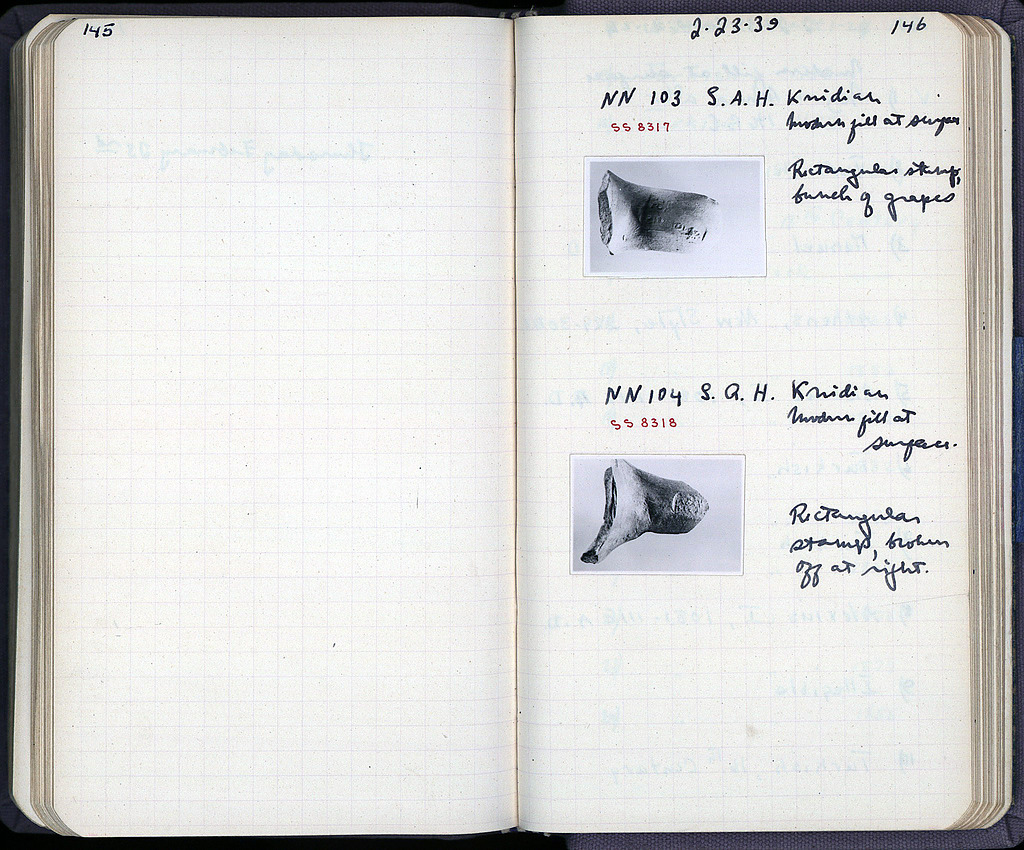 145
2-23-39 146
NN 103 S.A.H. Knidian
SS 8317 Modern fill at surface
Rectangular stamp,
bunch of grapes
NN 104 S.A.H. Knidian
SS 8318 Modern fill at
surface.
Rectangular
stamp, broken
off at right.